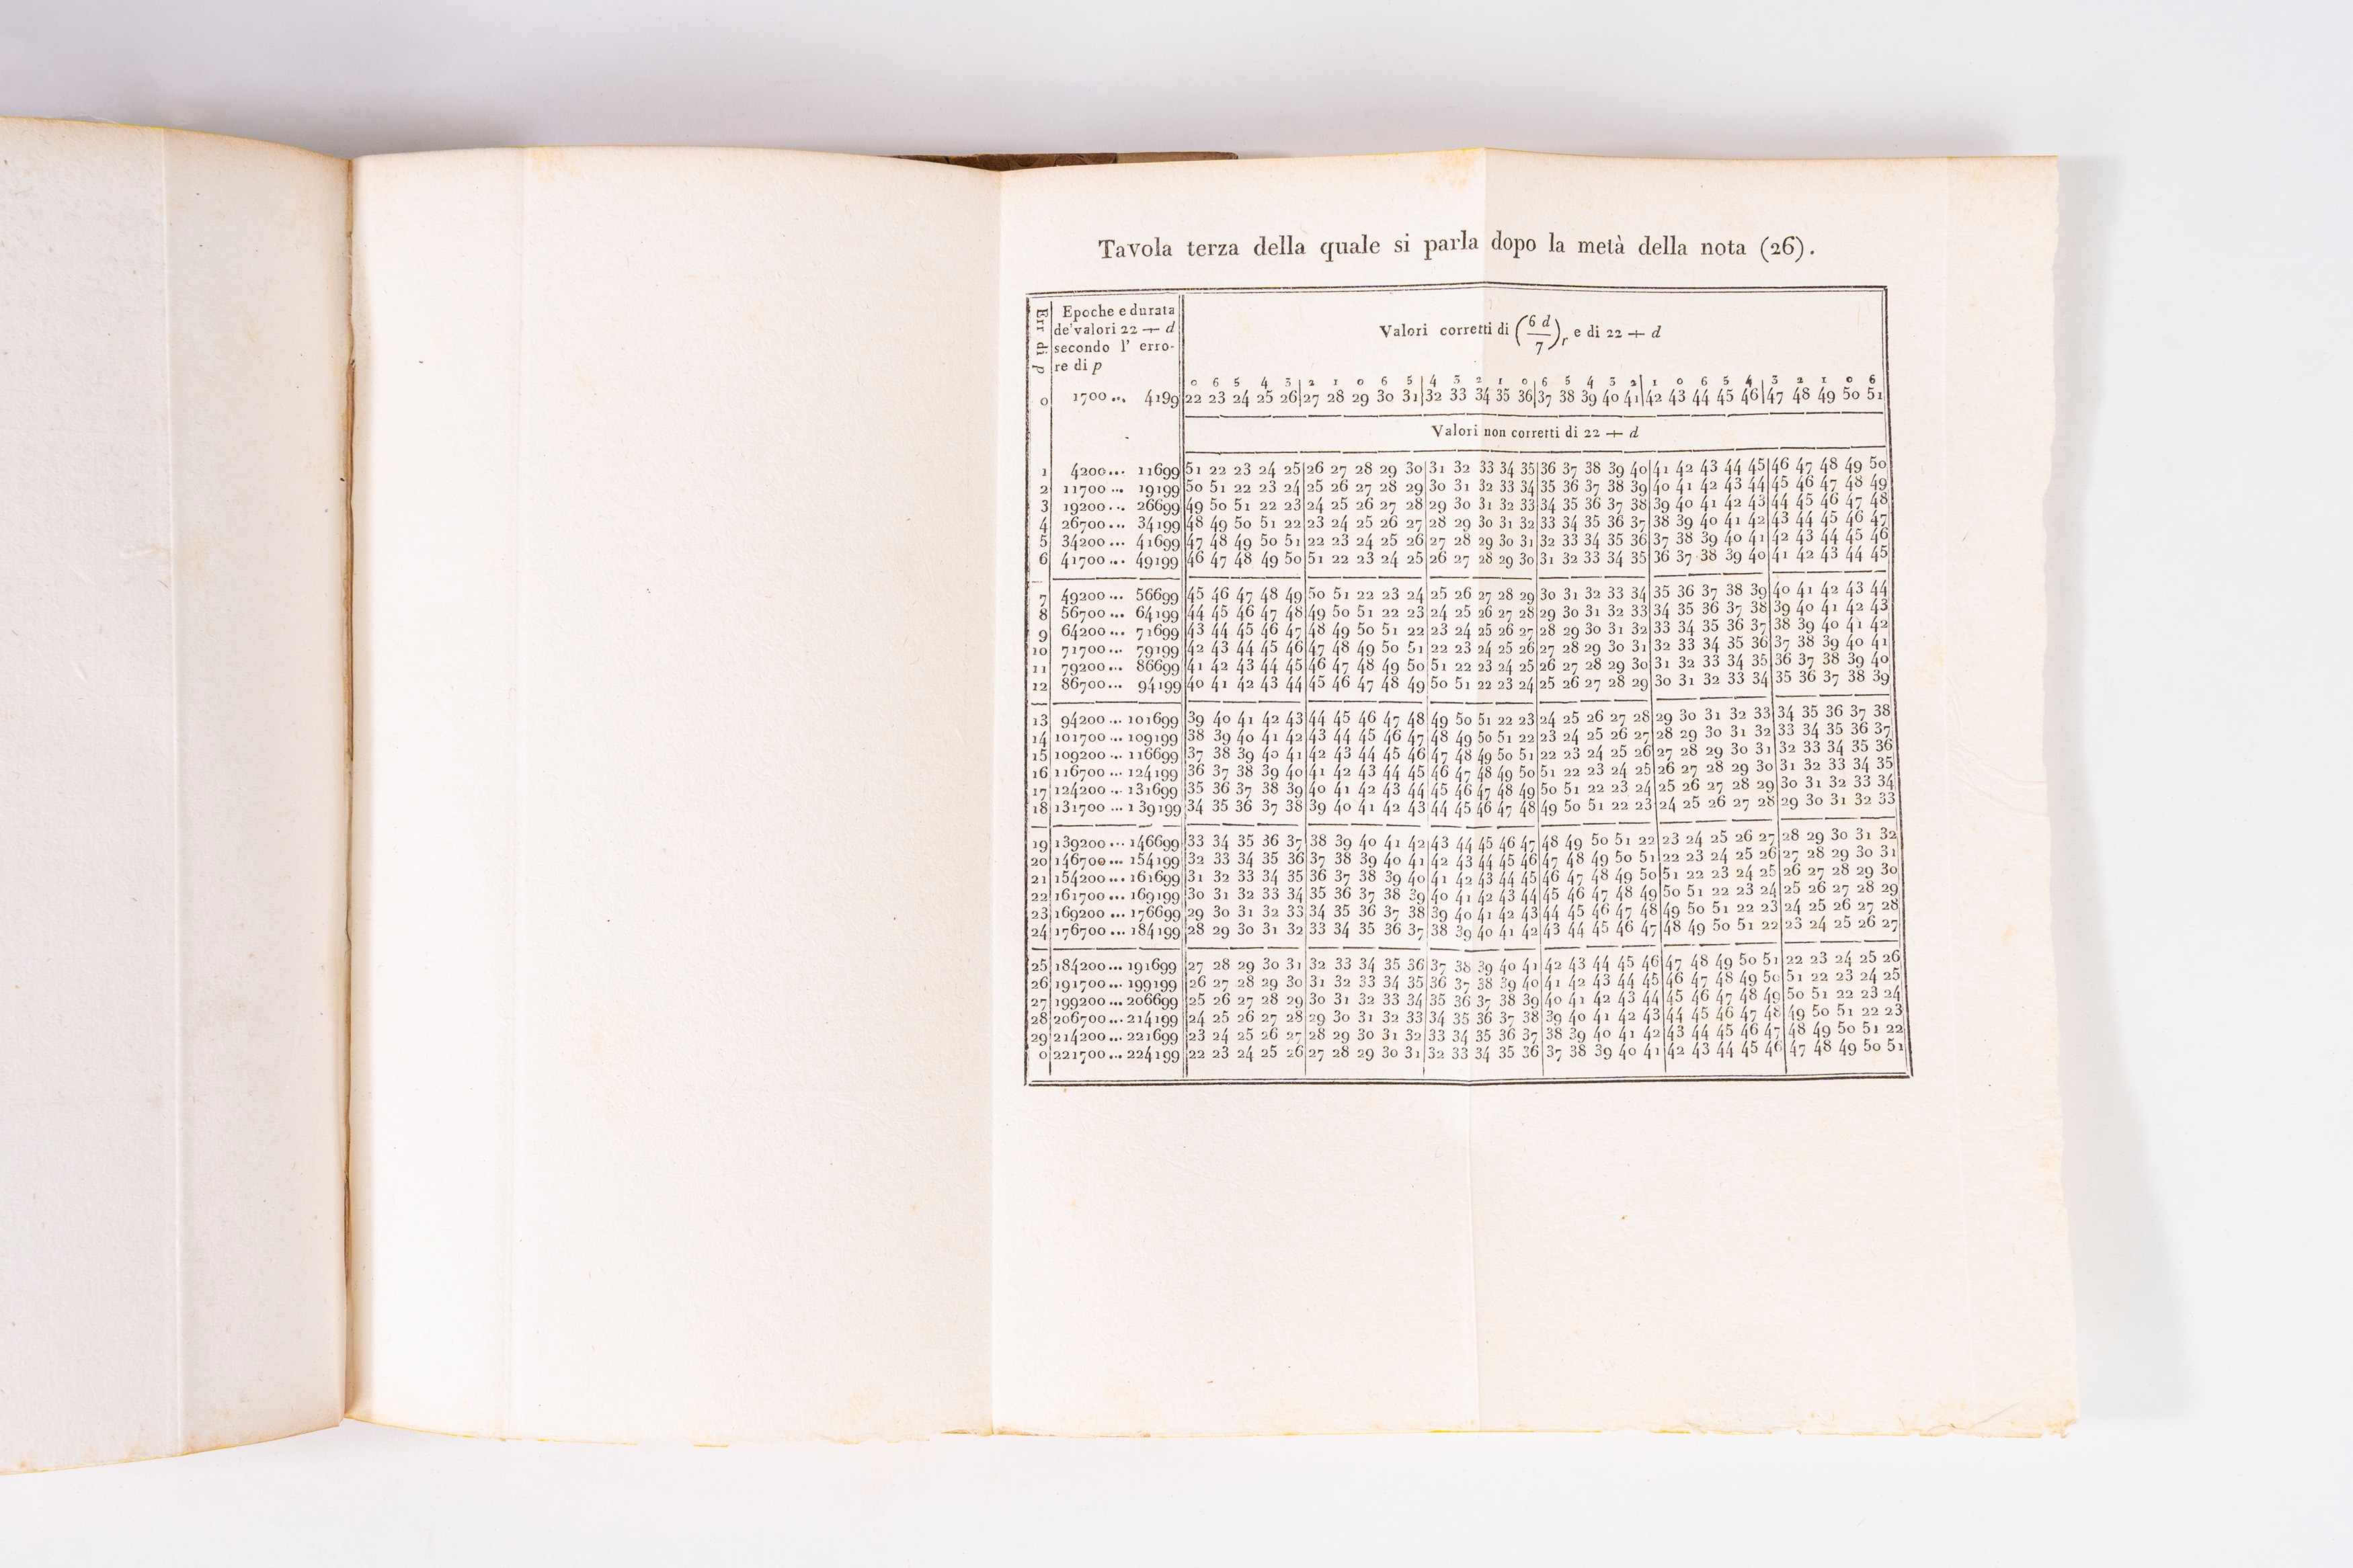 Tavola terza della quale si parla dopo la metà della nota (26).
Err di p
Epoche e durata
de' valori 22 + d
secondo l' erro-
re di p
Valori corretti di (6 d / 7)r e di 22 + d
0 6 5 4 3 2 1 0 6 5 4 3 2 1 0 6 5 4 3 2 1 0 6 5 4 3 2 1 0 6
0 1700 ... 4199 22 23 24 25 26 27 28 29 30 31 32 33 34 35 36 37 38 39 40 41 42 43 44 45 46 47 48 49 50 51
Valori non corretti di 22 + d
1 4200 ... 11699 51 22 23 24 25 26 27 28 29 30 31 32 33 34 35 36 37 38 39 40 41 42 43 44 45 46 47 48 49 50
2 11700 ... 19199 50 51 22 23 24 25 26 27 28 29 30 31 32 33 34 35 36 37 38 39 40 41 42 43 44 45 46 47 48 49
3 19200 ... 26699 49 50 51 22 23 24 25 26 27 28 29 30 31 32 33 34 35 36 37 38 39 40 41 42 43 44 45 46 47 48
4 26700 ... 34199 48 49 50 51 22 23 24 25 26 27 28 29 30 31 32 33 34 35 36 37 38 39 40 41 42 43 44 45 46 47
5 34200 ... 41699 47 48 49 50 51 22 23 24 25 26 27 28 29 30 31 32 33 34 35 36 37 38 39 40 41 42 43 44 45 46
6 41700 ... 49199 46 47 48 49 50 51 22 23 24 25 26 27 28 29 30 31 32 33 34 35 36 37 38 39 40 41 42 43 44 45
7 49200 ... 56699 45 46 47 48 49 50 51 22 23 24 25 26 27 28 29 30 31 32 33 34 35 36 37 38 39 40 41 42 43 44
8 56700 ... 64199 44 45 46 47 48 49 50 51 22 23 24 25 26 27 28 29 30 31 32 33 34 35 36 37 38 39 40 41 42 43
9 64200 ... 71699 43 44 45 46 47 48 49 50 51 22 23 24 25 26 27 28 29 30 31 32 33 34 35 36 37 38 39 40 41 42
10 71700 ... 79199 42 43 44 45 46 47 48 49 50 51 22 23 24 25 26 27 28 29 30 31 32 33 34 35 36 37 38 39 40 41
11 79200 ... 86699 41 42 43 44 45 46 47 48 49 50 51 22 23 24 25 26 27 28 29 30 31 32 33 34 35 36 37 38 39 40
12 86700 ... 94199 40 41 42 43 44 45 46 47 48 49 50 51 22 23 24 25 26 27 28 29 30 31 32 33 34 35 36 37 38 39
13 94200 ... 101699 39 40 41 42 43 44 45 46 47 48 49 50 51 22 23 24 25 26 27 28 29 30 31 32 33 34 35 36 37 38
14 101700 ... 109199 38 39 40 41 42 43 44 45 46 47 48 49 50 51 22 23 24 25 26 27 28 29 30 31 32 33 34 35 36 37
15 109200 ... 116699 37 38 39 40 41 42 43 44 45 46 47 48 49 50 51 22 23 24 25 26 27 28 29 30 31 32 33 34 35 36
16 116700 ... 124199 36 37 38 39 40 41 42 43 44 45 46 47 48 49 50 51 22 23 24 25 26 27 28 29 30 31 32 33 34 35
17 124200 ... 131699 35 36 37 38 39 40 41 42 43 44 45 46 47 48 49 50 51 22 23 24 25 26 27 28 29 30 31 32 33 34
18 131700 ... 139199 34 35 36 37 38 39 40 41 42 43 44 45 46 47 48 49 50 51 22 23 24 25 26 27 28 29 30 31 32 33
19 139200 ... 146699 33 34 35 36 37 38 39 40 41 42 43 44 45 46 47 48 49 50 51 22 23 24 25 26 27 28 29 30 31 32
20 146700 ... 154199 32 33 34 35 36 37 38 39 40 41 42 43 44 45 46 47 48 49 50 51 22 23 24 25 26 27 28 29 30 31
21 154200 ... 161699 31 32 33 34 35 36 37 38 39 40 41 42 43 44 45 46 47 48 49 50 51 22 23 24 25 26 27 28 29 30
22 161700 ... 169199 30 31 32 33 34 35 36 37 38 39 40 41 42 43 44 45 46 47 48 49 50 51 22 23 24 25 26 27 28 29
23 169200 ... 176699 29 30 31 32 33 34 35 36 37 38 39 40 41 42 43 44 45 46 47 48 49 50 51 22 23 24 25 26 27 28
24 176700 ... 184199 28 29 30 31 32 33 34 35 36 37 38 39 40 41 42 43 44 45 46 47 48 49 50 51 22 23 24 25 26 27
25 184200 ... 191699 27 28 29 30 31 32 33 34 35 36 37 38 39 40 41 42 43 44 45 46 47 48 49 50 51 22 23 24 25 26
26 191700 ... 199199 26 27 28 29 30 31 32 33 34 35 36 37 38 39 40 41 42 43 44 45 46 47 48 49 50 51 22 23 24 25
27 199200 ... 206699 25 26 27 28 29 30 31 32 33 34 35 36 37 38 39 40 41 42 43 44 45 46 47 48 49 50 51 22 23 24
28 206700 ... 214199 24 25 26 27 28 29 30 31 32 33 34 35 36 37 38 39 40 41 42 43 44 45 46 47 48 49 50 51 22 23
29 214200 ... 221699 23 24 25 26 27 28 29 30 31 32 33 34 35 36 37 38 39 40 41 42 43 44 45 46 47 48 49 50 51 22
0 221700 ... 224199 22 23 24 25 26 27 28 29 30 31 32 33 34 35 36 37 38 39 40 41 42 43 44 45 46 47 48 49 50 51